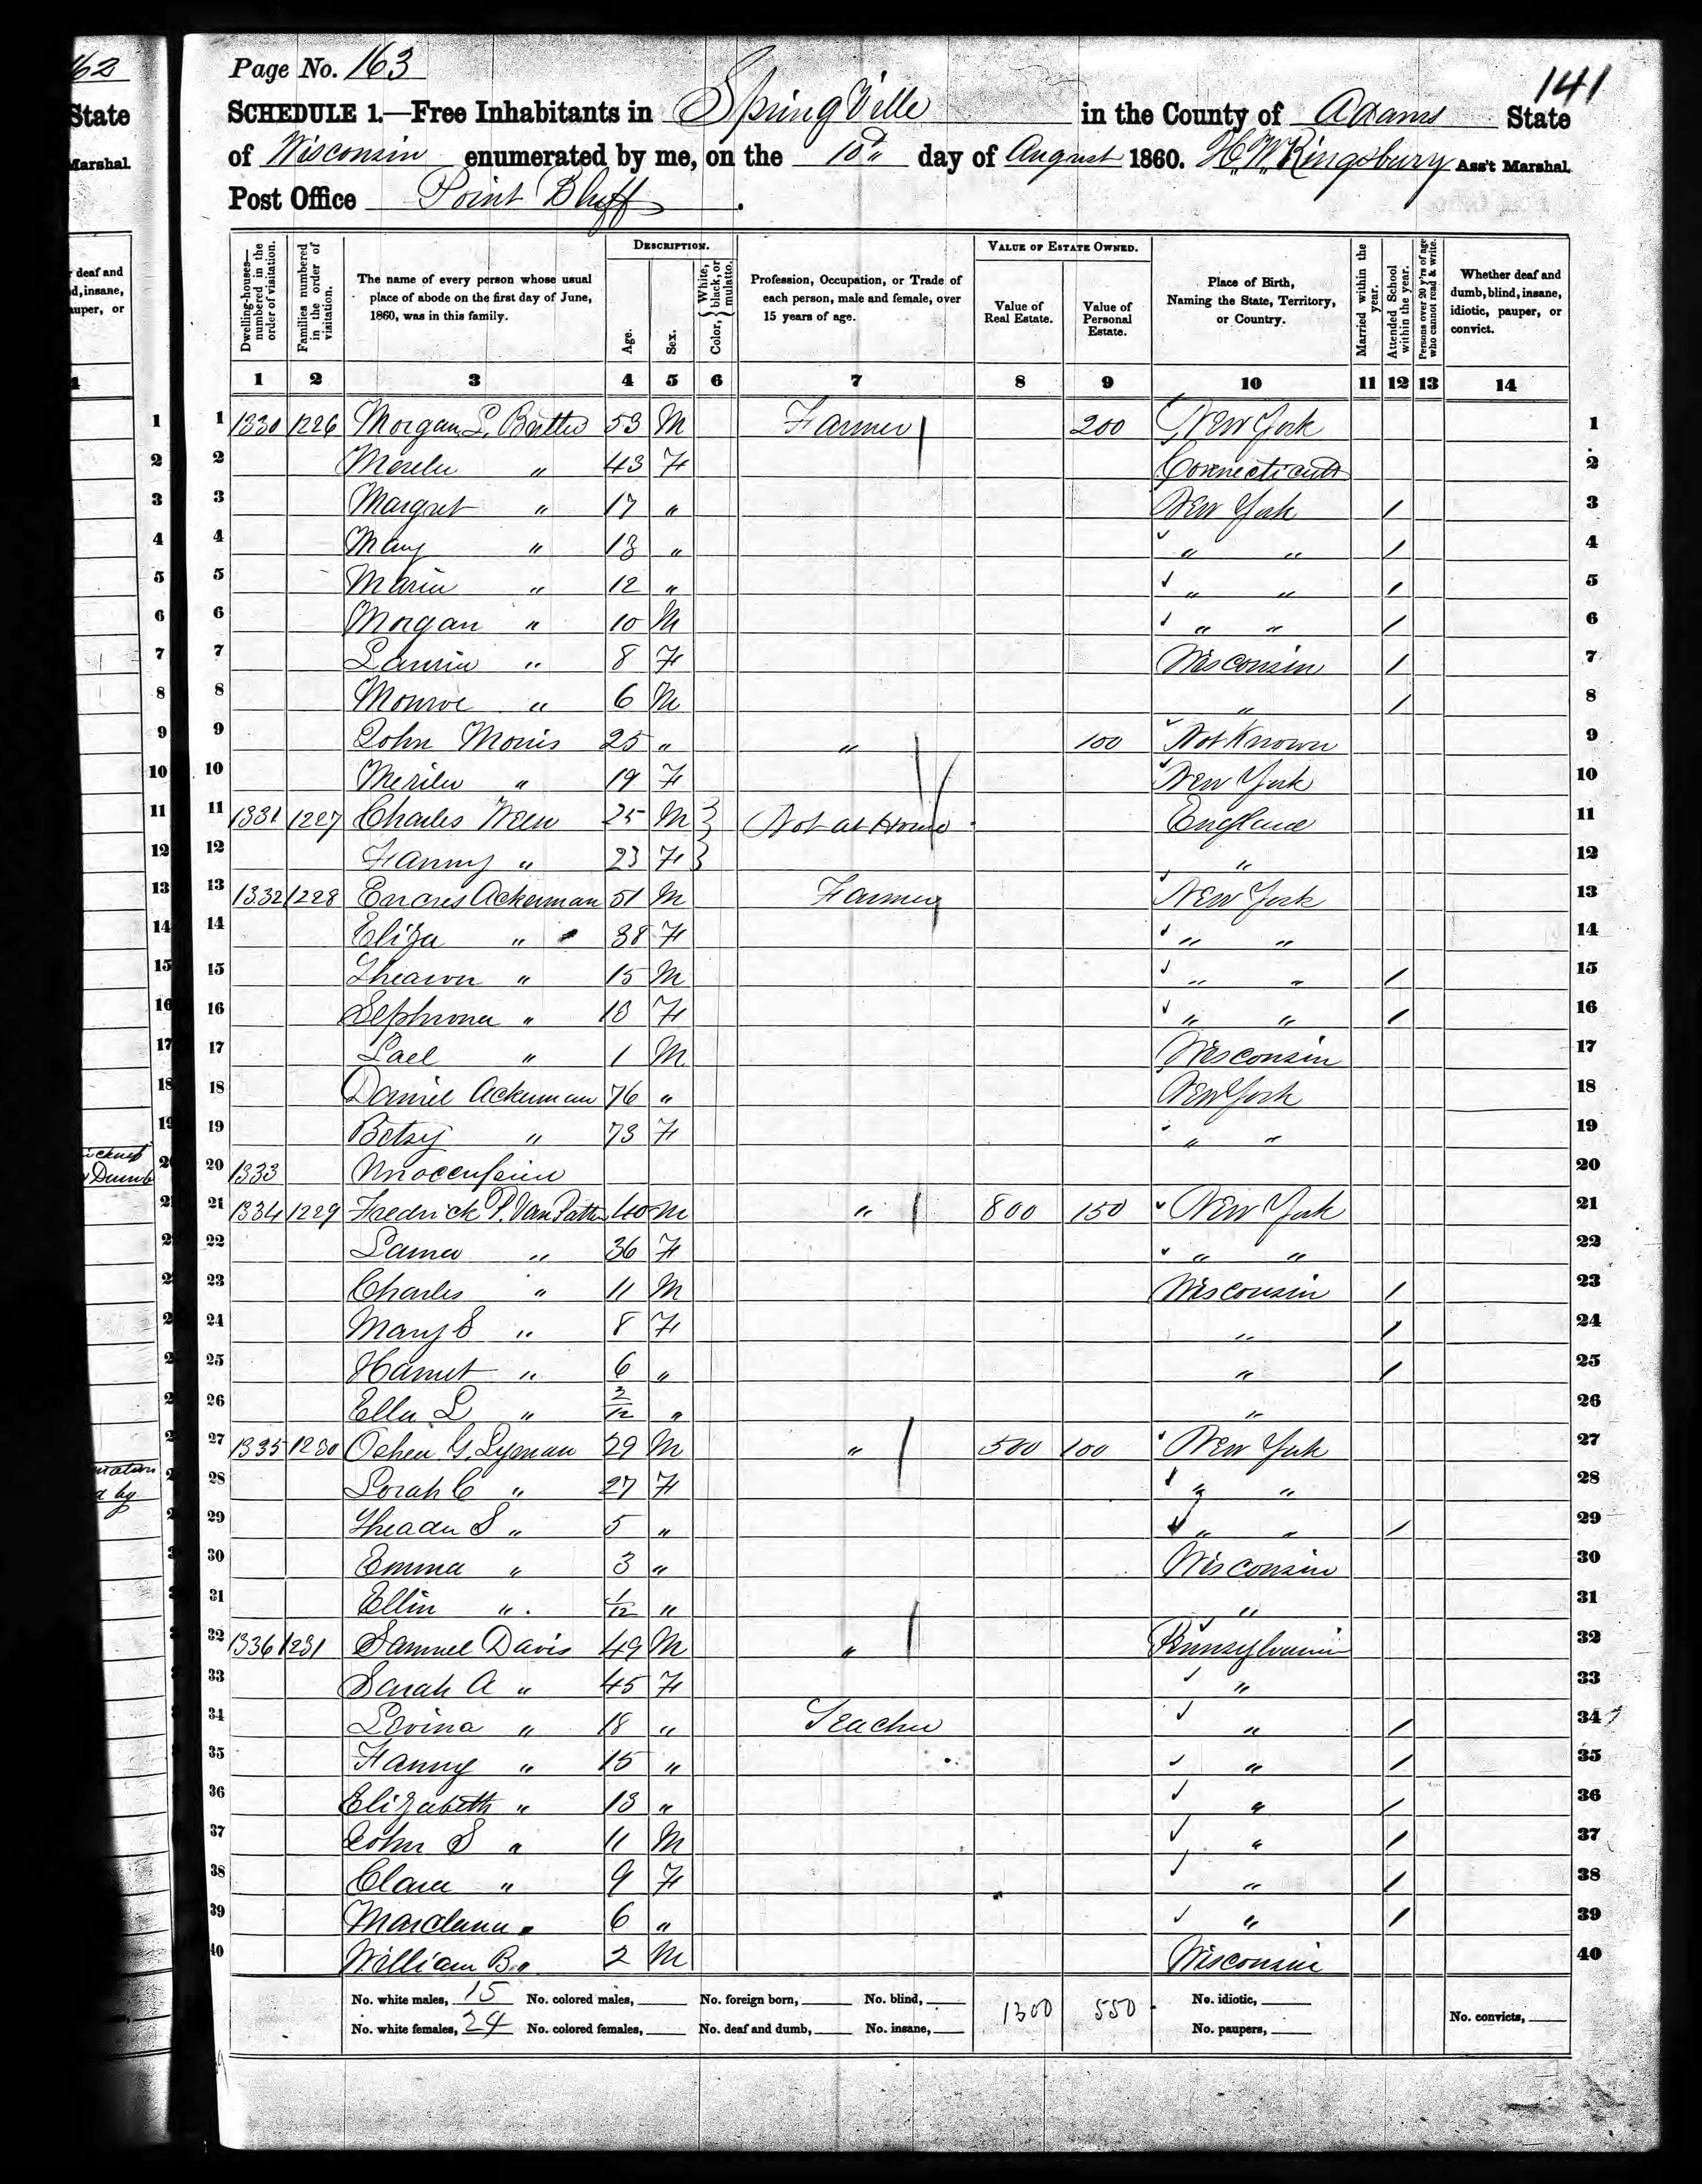 62
State
Marshal.
r deaf and
d, insane,
auper, or
Page No. 163
141
SCHEDULE 1.—Free Inhabitants in Spring Ville in the County of Adams State
of Wisconsin enumerated by me, on the 10th day of August 1860. H. W. Kingsbury Ass't Marshal.
Post Office Point Bluff.
Dwelling-houses—numbered in the order of visitation.
Families numbered in the order of visitation.
The name of every person whose usual place of abode on the first day of June, 1860, was in this family.
DESCRIPTION.
Age.
Sex.
Color, { White, black, or mulatto.
Profession, Occupation, or Trade of each person, male and female, over 15 years of age.
VALUE OF ESTATE OWNED.
Value of Real Estate.
Value of Personal Estate.
Place of Birth, Naming the State, Territory, or Country.
Married within the year.
Attended School within the year.
Persons over 20 y'rs of age who cannot read & write.
Whether deaf and dumb, blind, insane, idiotic, pauper, or convict.
1 2 3 4 5 6 7 8 9 10 11 12 13 14
1 1330 1226 Morgan L. 53 M Farmer 200 New York 1
2 " 43 F Connecticutt 2
3 Margret " 17 " New York / 3
4 Mary " 13 " " " / 4
5 Maria " 12 " " " / 5
6 Morgan " 10 M " " / 6
7 " 8 F Wisconsin / 7
8 Monroe " 6 M " / 8
9 John Morris 25 " " 100 Not Known 9
10 " 19 F New York 10
11 1331 1227 Charles 25 M } Not at Home England 11
12 Fanny " 23 F } " 12
13 1332 1228 Ackerman 51 M Farmer New York 13
14 Eliza " 38 F " " 14
15 " 15 M " " / 15
16 " 13 F " " / 16
17 Lael " 1 M Wisconsin 17
18 Daniel Ackerman 76 " New York 18
19 Betsy " 73 F " " 19
20 1333 20
21 1334 1229 Fredrick P. Van Patten 40 M " 800 150 New York 21
22 " 36 F " " 22
23 Charles " 11 M Wisconsin / 23
24 Mary S " 8 F " / 24
25 Harriet " 6 " " / 25
26 Ella L " 3/12 " " 26
27 1335 1230 G. Lyman 29 M " 500 100 New York 27
28 Sorah C " 27 F " " 28
29 S " 5 " " " / 29
30 Emma " 3 " Wisconsin 30
31 Ellin " 1/12 " " 31
32 1336 1231 Samuel Davis 49 M " Pennsylvania 32
33 Sarah A " 45 F " 33
34 Lovina " 18 " Teacher " / 34
35 Fanny " 15 " " / 35
36 Elizabeth " 13 " " / 36
37 John S " 11 M " / 37
38 Clara " 9 F " / 38
39 " 6 " " / 39
40 William B " 2 M Wisconsin 40
No. white males, 15 No. colored males, No. foreign born, No. blind, 1300 550 No. idiotic,
No. white females, 24 No. colored females, No. deaf and dumb, No. insane, No. paupers, No. convicts,